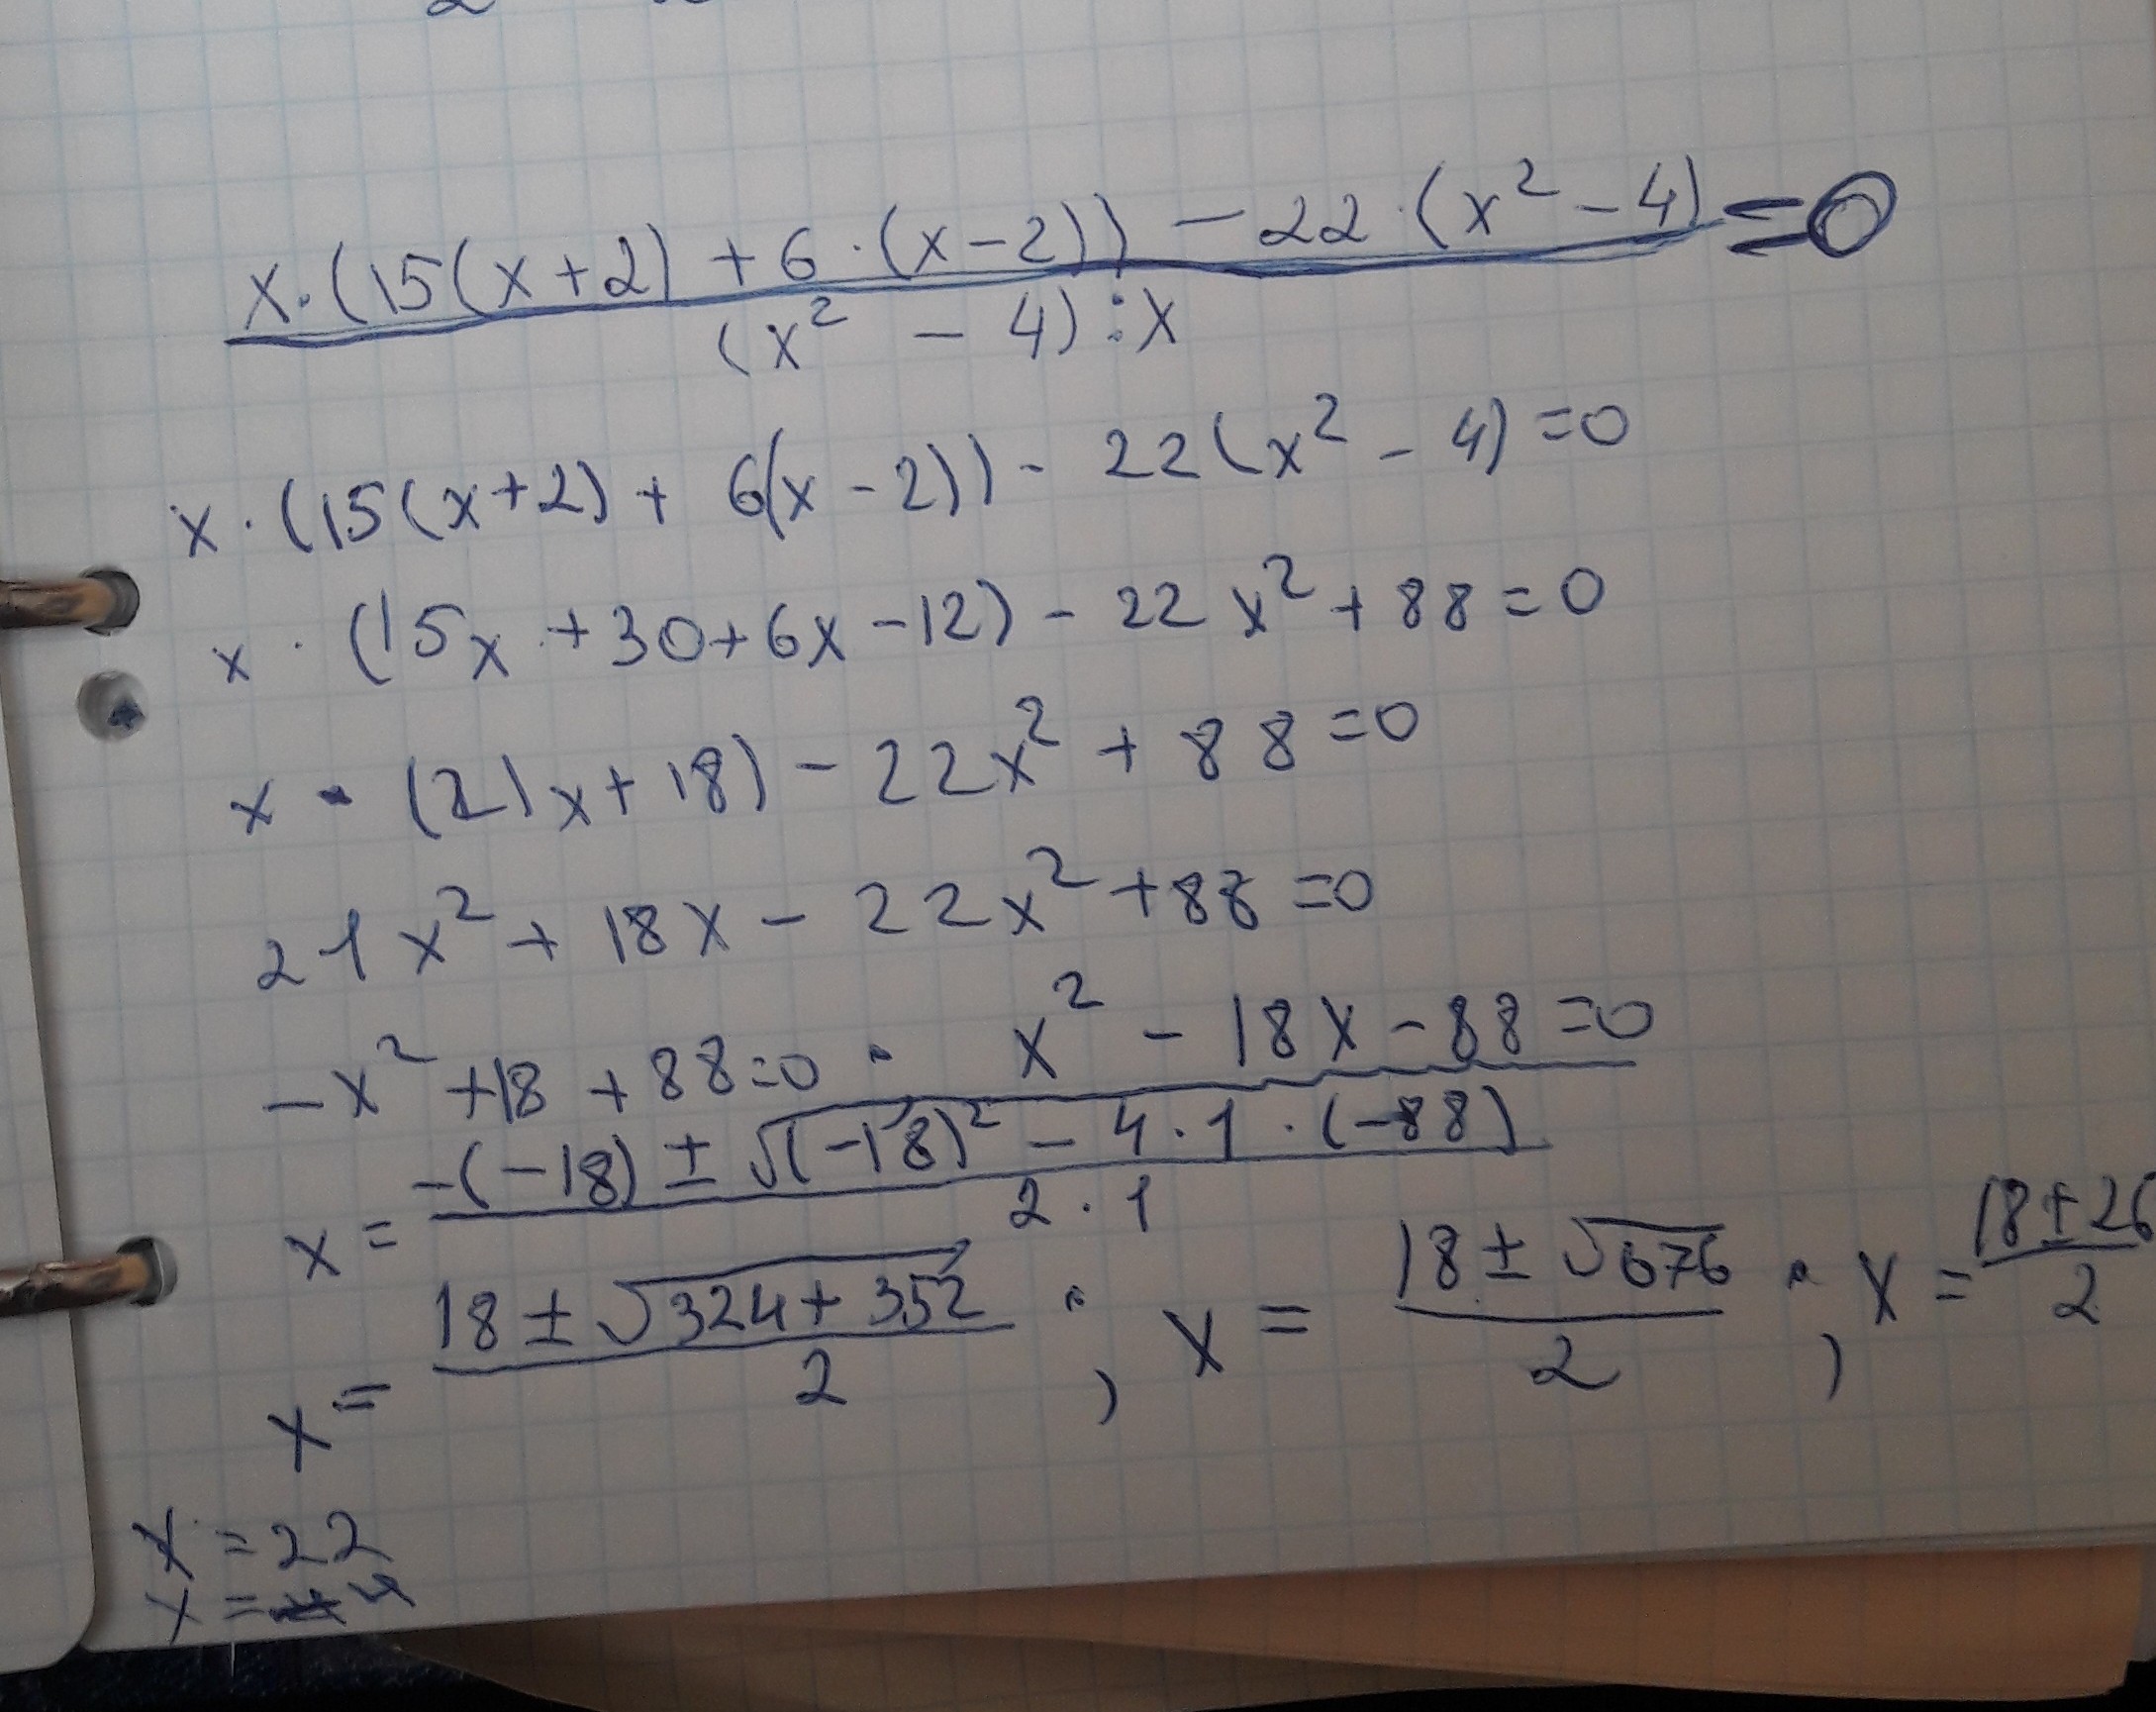 x·(15(x+2)+6·(x-2))-22·(x²-4)=0
(x²-4):x
x·(15(x+2)+6(x-2))-22(x²-4)=0
x·(15x+30+6x-12)-22x²+88=0
x·(21x+18)-22x²+88=0
21x²+18x-22x²+88=0
-x²+18+88=0 · x²-18x-88=0
x=(-(-18)±√((-18)²-4·1·(-88)))/(2·1)
x=(18±√(324+352))/2 ; x=(18±√676)/2 ; x=(18±26)/2
x=22
x=